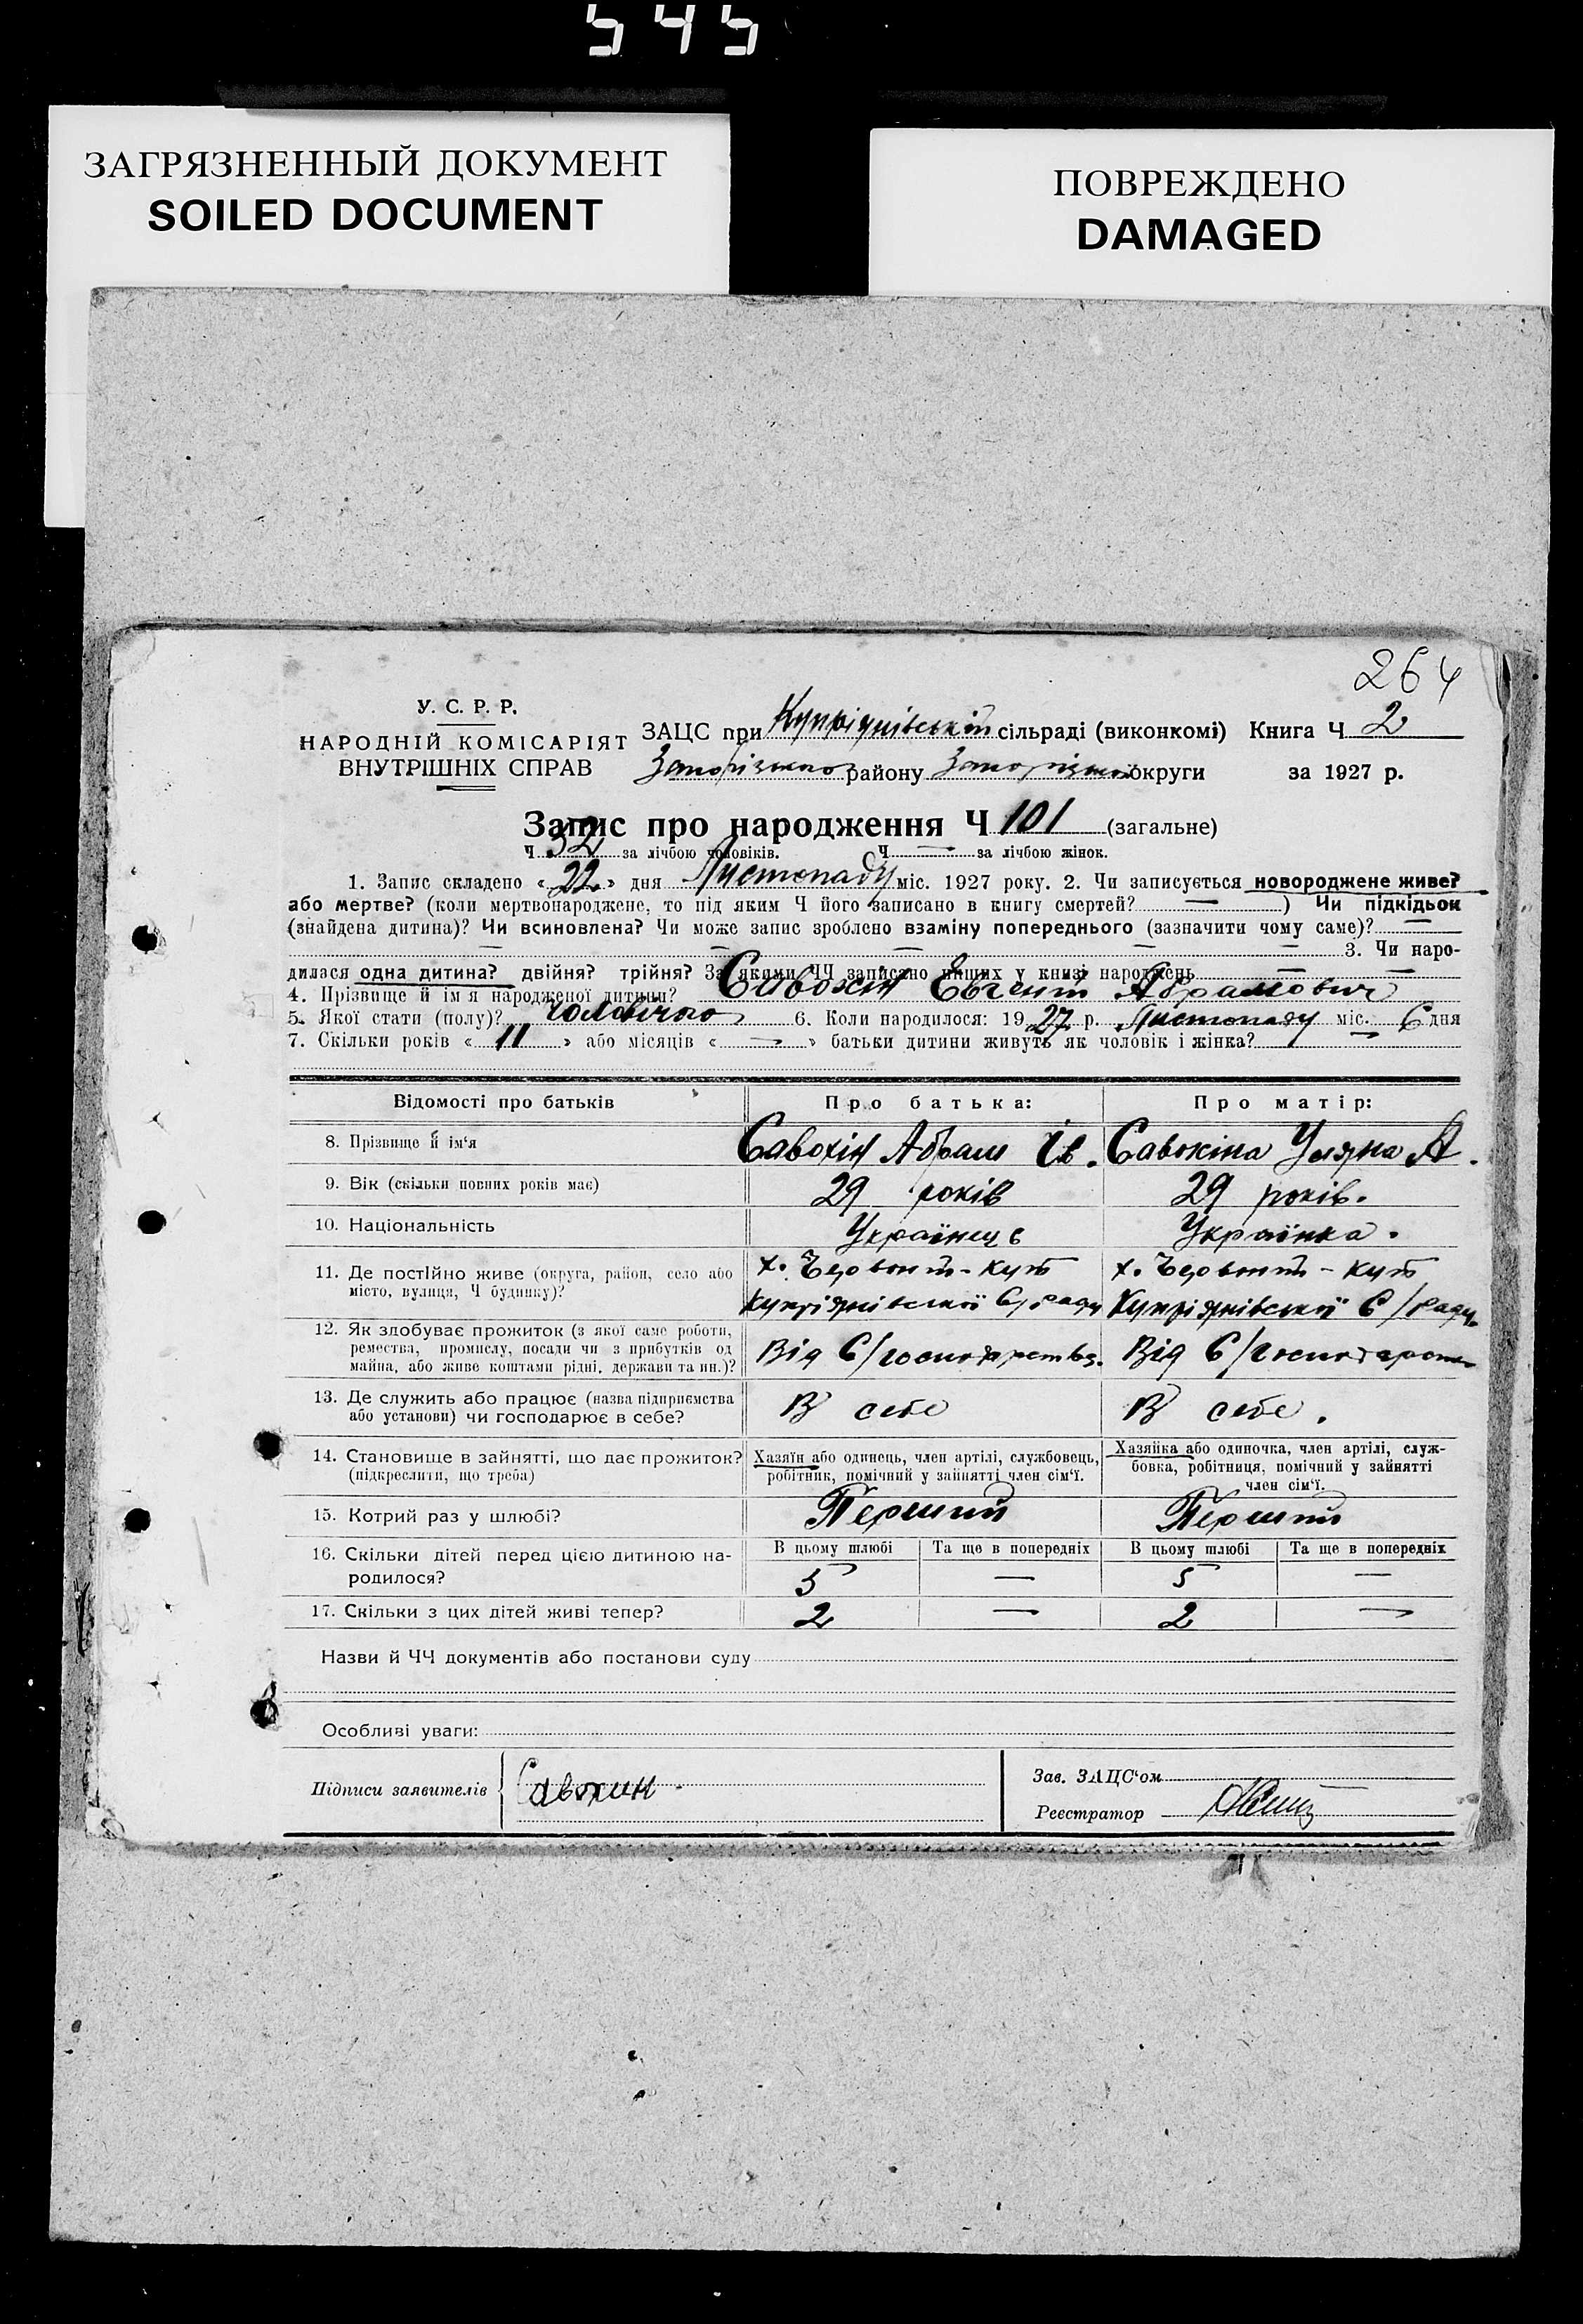 545
ЗАГРЯЗНЕННЫЙ ДОКУМЕНТ
SOILED DOCUMENT
ПОВРЕЖДЕНО
DAMAGED
264
У. С. Р. Р.
НАРОДНІЙ КОМІСАРІЯТ
ВНУТРІШНІХ СПРАВ
ЗАЦС при Купріянівській сільраді (виконкомі) Книга Ч 2
Запорізького району Запорізької округи за 1927 р.
Запис про народження Ч 101 (загальне)
Ч 52 за лічбою чоловіків. Ч — за лічбою жінок.
1. Запис складено «22» дня Листопаду міс. 1927 року. 2. Чи записується новороджене живе?
або мертве? (коли мертвонароджене, то під яким Ч його записано в книгу смертей? — ) Чи підкідьок
(знайдена дитина)? Чи всиновлена? Чи може запис зроблено взаміну попереднього (зазначити чому саме)? —
— — — — — 3. Чи наро-
дилася одна дитина? двійня? трійня? За якими ЧЧ записано інших у книзі народжень — —
4. Прізвище й ім'я народженої дитини? Савохін Євгеній Абрамович
5. Якої стати (полу)? чоловічого 6. Коли народилося: 1927 р. Листопаду міс. 6 дня
7. Скільки років « 11 » або місяців « — » батьки дитини живуть як чоловік і жінка? —
Відомості про батьків Про батька: Про матір:
8. Прізвище й ім'я Савохін Абрам Ів. Савокіна Уляна А.
9. Вік (скільки повних років має) 29 років 29 років.
10. Національність Українець Українка.
11. Де постійно живе (округа, район, село або х. Червоний-Кут х. Червоний-Кут
місто, вулиця, Ч будинку)? Купріянівської С/ради Купріянівської С/ради
12. Як здобуває прожиток (з якої саме роботи,
ремества, промислу, посади чи з прибутків од
майна, або живе коштами рідні, держави та ин.)? Від С/господарства. Від С/господарства
13. Де служить або працює (назва підприємства
або установи) чи господарює в себе? В себе В себе.
14. Становище в зайнятті, що дає прожиток? Хазяїн або одинець, член артілі, службовець, Хазяйка або одиночка, член артілі, служ-
(підкреслити, що треба) робітник, помічний у зайнятті член сім'ї. бовка, робітниця, помічний у зайнятті
член сім'ї.
15. Котрий раз у шлюбі? Перший Перший
В цьому шлюбі Та ще в попередніх В цьому шлюбі Та ще в попередніх
16. Скільки дітей перед цією дитиною на-
родилося? 5 — 5 —
17. Скільки з цих дітей живі тепер? 2 — 2 —
Назви й ЧЧ документів або постанови суду
Особливі уваги:
Підписи заявителів Савохин
Зав. ЗАЦС'ом —
Реєстратор